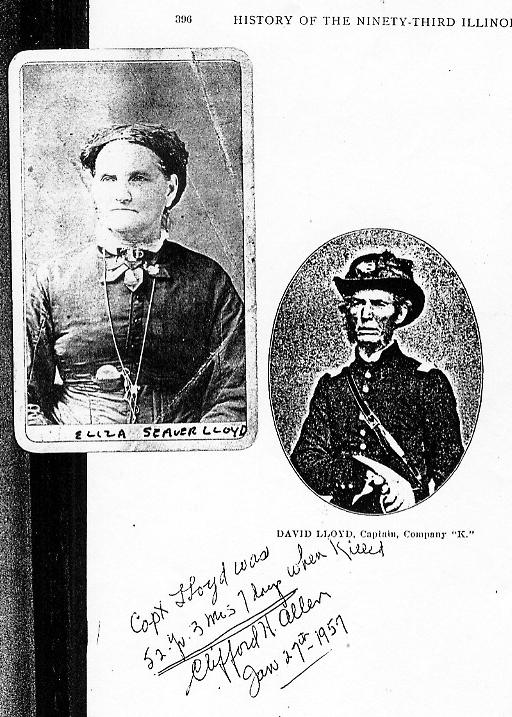 396 HISTORY OF THE NINETY-THIRD ILLINOI
ELIZA SEAVER LLOYD
DAVID LLOYD, Captain, Company "K."
Capt Lloyd was
52 Yr. 3 mos 7 days when Killed
Clifford H. Allen
Jan 27th - 1957